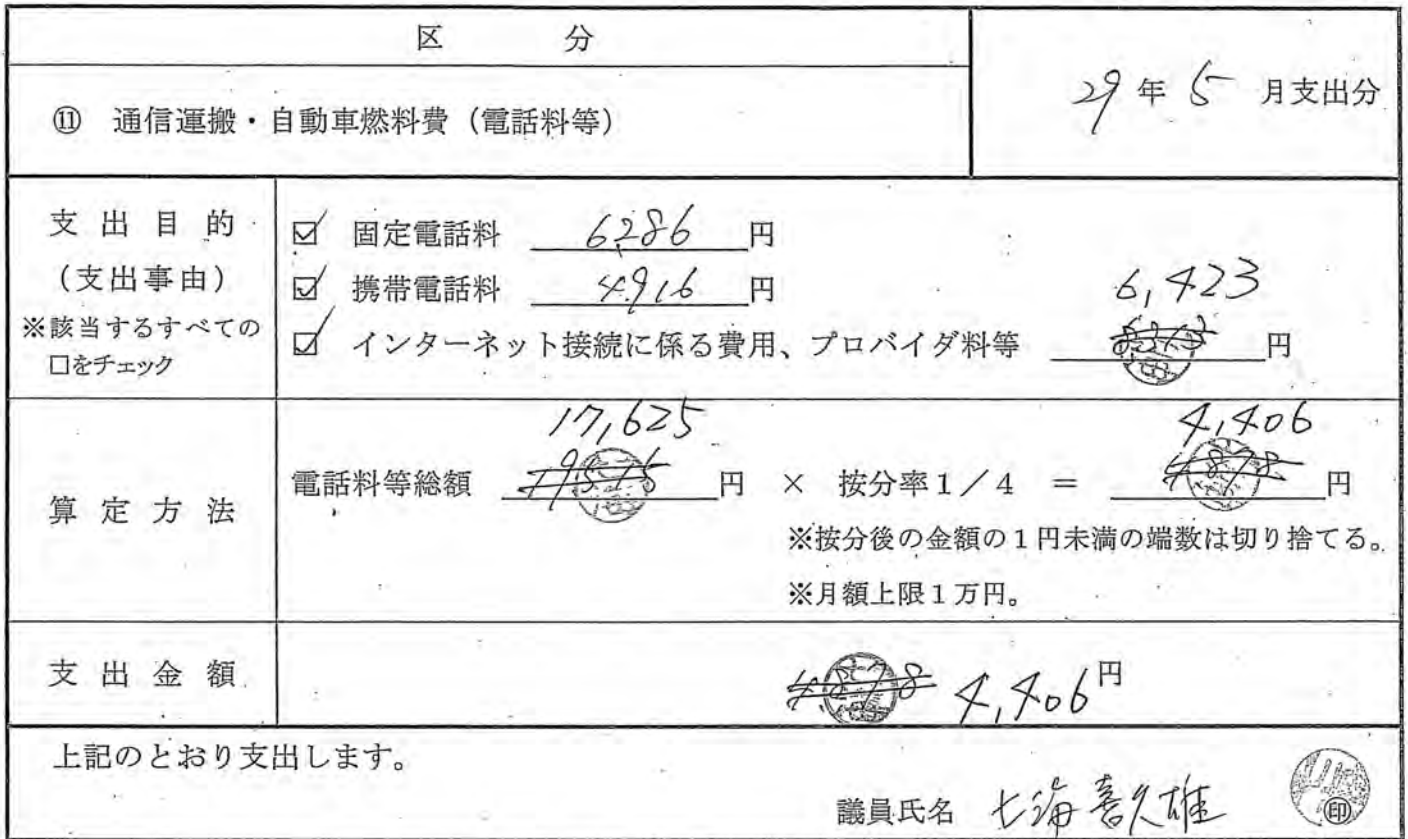 区 分
29年5月支出分
⑪ 通信運搬・自動車燃料費（電話料等）
支出目的
（支出事由）
※該当するすべての
□をチェック
☑ 固定電話料 6286円
☑ 携帯電話料 4916円
6,423
☑ インターネット接続に係る費用、プロバイダ料等 円
算定方法
17,625 4,406
電話料等総額 円 × 按分率1／4 ＝ 4878円
※按分後の金額の1円未満の端数は切り捨てる。
※月額上限1万円。
支出金額
4,878 4,406円
上記のとおり支出します。
議員氏名 七海喜久雄 ㊞